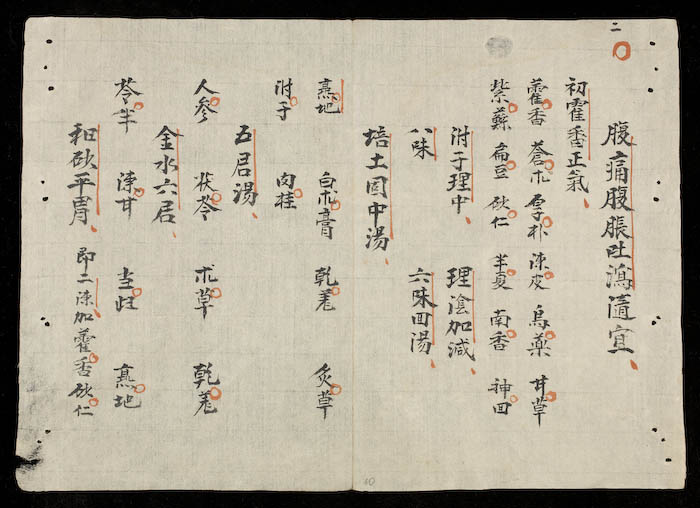 二
腹痛腹脹吐瀉隨宜
初霍香正氣
藿香 蒼朮 厚朴 陳皮 烏藥 甘草
紫蘇 扁豆 砂仁 半夏 南香 神回
附子理中 理陰加減
八味 六味回湯
培土固中湯
熹地 白朮膏 乾羌 炙草
附子 肉桂
五君湯
人參 茯苓 朮草 乾羌
金水六君
苓半 陳甘 当歸 熹地
和砂平胃 即二陳加藿香砂仁
10